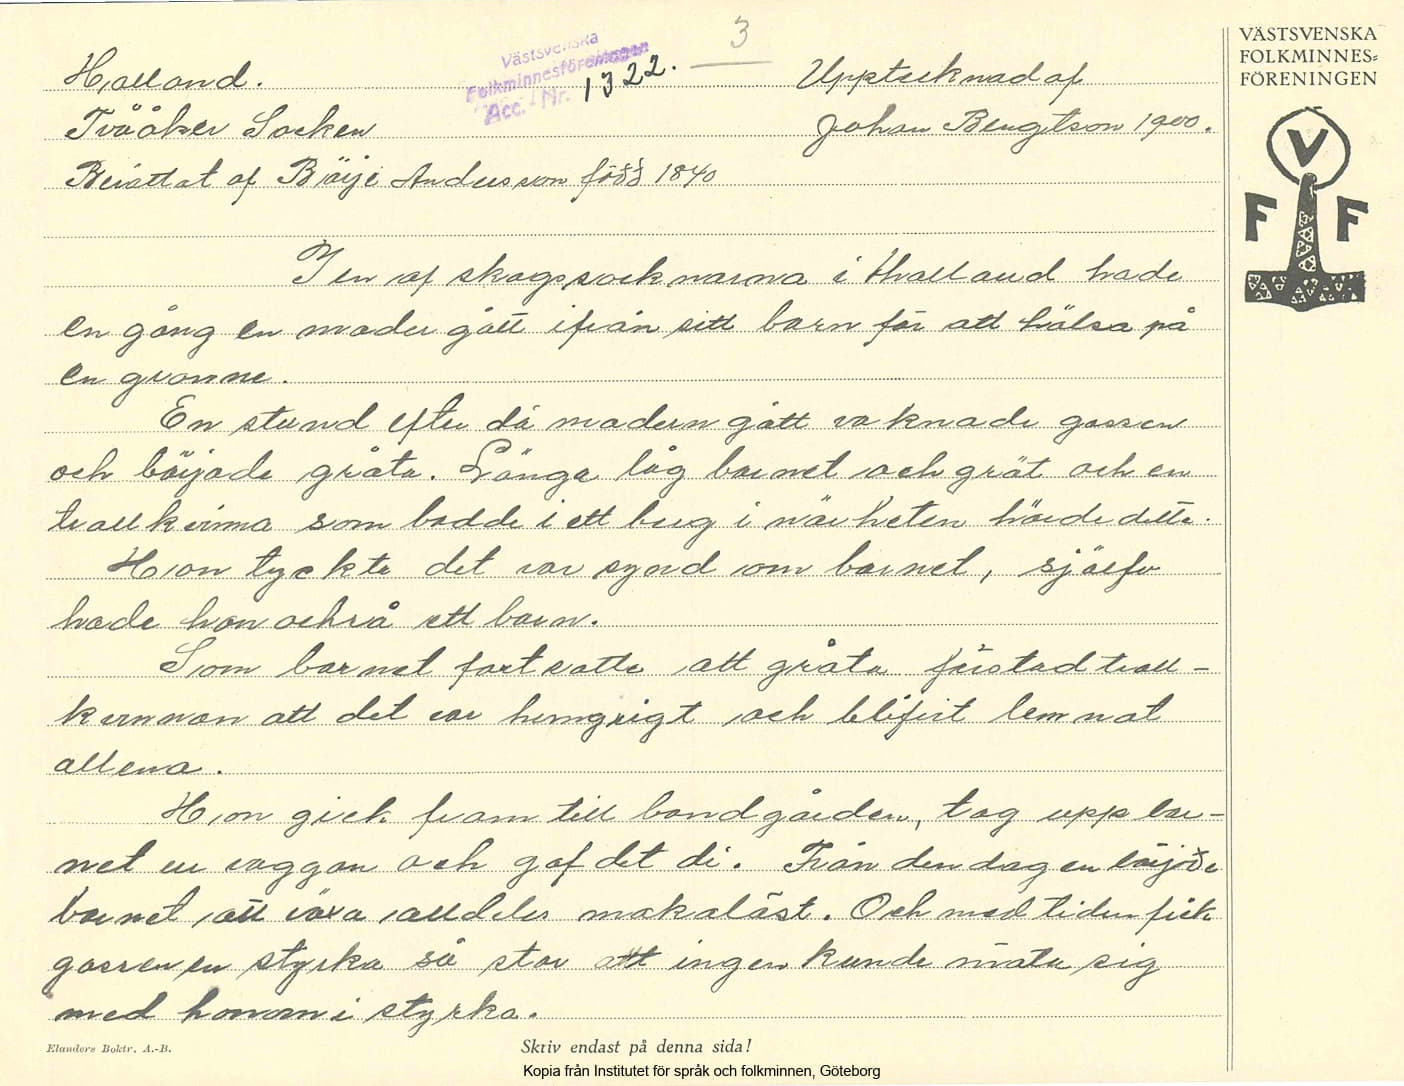 3
VÄSTSVENSKA
FOLKMINNES-
FÖRENINGEN
V
F F
Västsvenska
Folkminnesföreningen
Acc. - Nr. 1322.
Halland.
Upptecknad af
Tvååker Socken
Johan Bengtson 1900.
Berättat af Börje Andersson född 1840
I en af skogssocknarna i Halland hade
en gång en moder gått ifrån sitt barn för att hälsa på
en granne.
En stund efter då modern gått vaknade gossen
och böijade gråta. Länge låg barnet och grät och en
trollkvinna som bodde i ett berg i närheten hörde detta.
Hon tyckte det var synd om barnet, sjelfv
hade hon också ett barn.
Som barnet fortsatte att gråta förstod troll-
kvinnan att det var hungrigt och blifvit lemnat
allena.
Hon gick fram till bondgården, tog upp bar-
net ur vaggan och gaf det di. Från den dagen böijade
barnet att växa alldeles makalöst. Och med tiden fick
gossen en styrka så stor att ingen kunde mäta sig
med honom i styrka.
Elanders Boktr. A.-B.
Skriv endast på denna sida!
Kopia från Institutet för språk och folkminnen, Göteborg